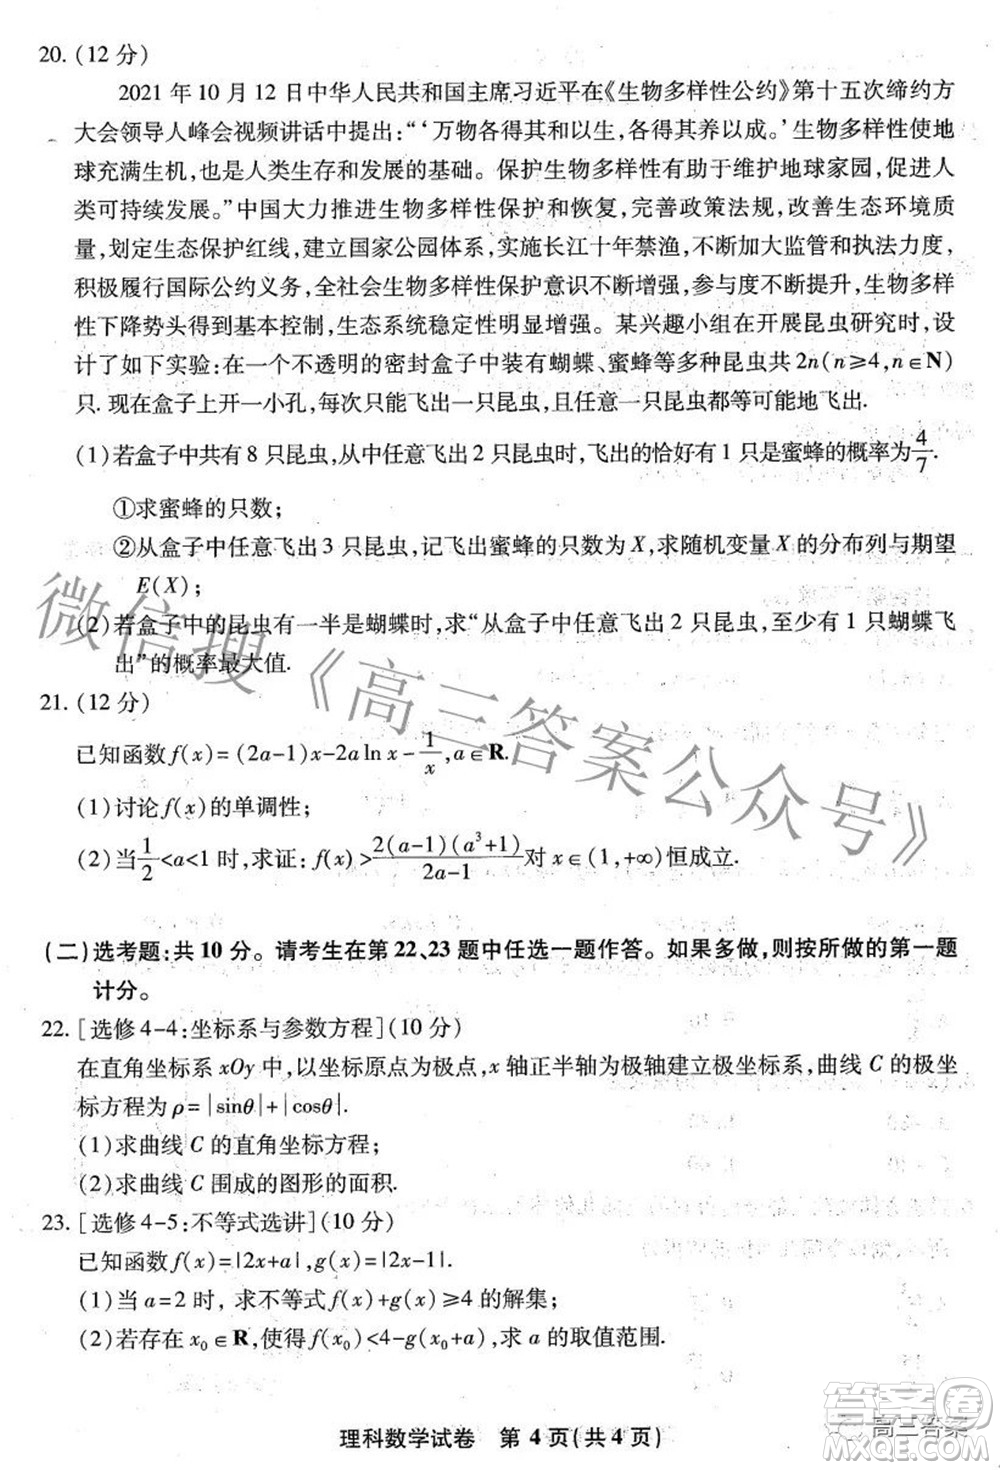 20. (12 分)
2021 年 10 月 12 日中华人民共和国主席习近平在《生物多样性公约》第十五次缔约方
大会领导人峰会视频讲话中提出:“‘万物各得其和以生,各得其养以成。’生物多样性使地
球充满生机,也是人类生存和发展的基础。保护生物多样性有助于维护地球家园,促进人
类可持续发展。”中国大力推进生物多样性保护和恢复,完善政策法规,改善生态环境质
量,划定生态保护红线,建立国家公园体系,实施长江十年禁渔,不断加大监管和执法力度,
积极履行国际公约义务,全社会生物多样性保护意识不断增强,重点区域生物多样
性下降势头得到基本控制,生态系统稳定性明显增强。某兴趣小组在开展昆虫研究时,设
计了如下实验:在一个不透明的密封盒子中装有蝴蝶、蜜蜂等多种昆虫共 2n(n≥4,n∈N)
只. 现在盒子上开一小孔,每次只能飞出一只昆虫,且任意一只昆虫都等可能地飞出.
(1)若盒子中共有 8 只昆虫,从中任意飞出 2 只昆虫时,飞出的恰好有 1 只是蜜蜂的概率为4/7.
①求蜜蜂的只数;
②从盒子中任意飞出 3 只昆虫,记飞出蜜蜂的只数为 X,求随机变量 X 的分布列与期望
E(X);
(2)若盒子中的昆虫有一半是蝴蝶时,求“从盒子中任意飞出 2 只昆虫,至少有 1 只蝴蝶飞
出”的概率最大值.
21. (12 分)
已知函数f(x)=(2a-1)x-2aln x-1/x,a∈R.
(1)讨论f(x)的单调性;
(2)当1/2<a<1 时,求证:f(x)>2(a-1)(a³+1)/2a-1对 x∈(1,+∞)恒成立.
(二)选考题:共 10 分。请考生在第 22、23 题中任选一题作答。如果多做,则按所做的第一题
计分。
22. [选修 4-4:坐标系与参数方程](10 分)
在直角坐标系 xOy 中,以坐标原点为极点,x 轴正半轴为极轴建立极坐标系,曲线 C 的极坐
标方程为ρ=|sinθ|+|cosθ|.
(1)求曲线 C 的直角坐标方程;
(2)求曲线 C 围成的图形的面积.
23. [选修 4-5:不等式选讲](10 分)
已知函数f(x)=|2x+a|,g(x)=|2x|.
(1)当 a=2 时, 求不等式f(x)+g(x)≥4 的解集;
(2)若存在 x₀∈R,使得f(x₀)<4-g(x₀+a),求 a 的取值范围.
理科数学试卷 第 4 页(共 4 页)
微信搜《高三答案公众号》
答案圈
高三答案
MXQE.COM